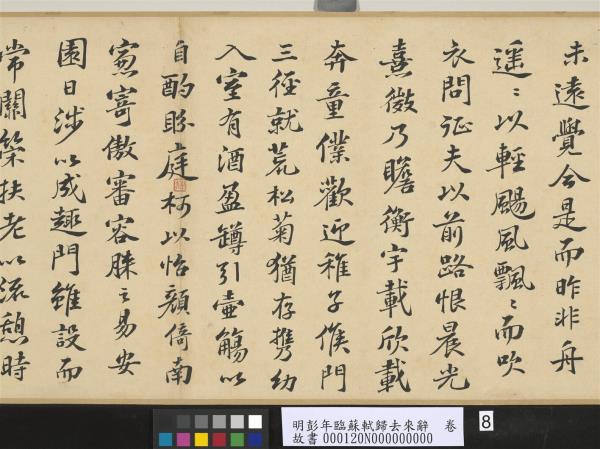 未遠覺今是而昨非舟
遥〻以輕颺風飄〻而吹
衣問征夫以前路恨晨光
熹微乃瞻衡宇載欣載
奔童僕歡迎稚子候門
三徑就荒松菊猶存携幼
入室有酒盈罇引壷觴以
自酌眄庭柯以怡顔倚南
窓寄傲審容膝之易安
園日涉以成趣門雖設而
常關策扶老以流憩時
明彭年臨蘇軾歸去來辭 卷
故書 000120N000000000
8